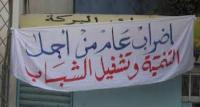 البركة
اضراب عام من أجل
التنمية وتشغيل الشباب